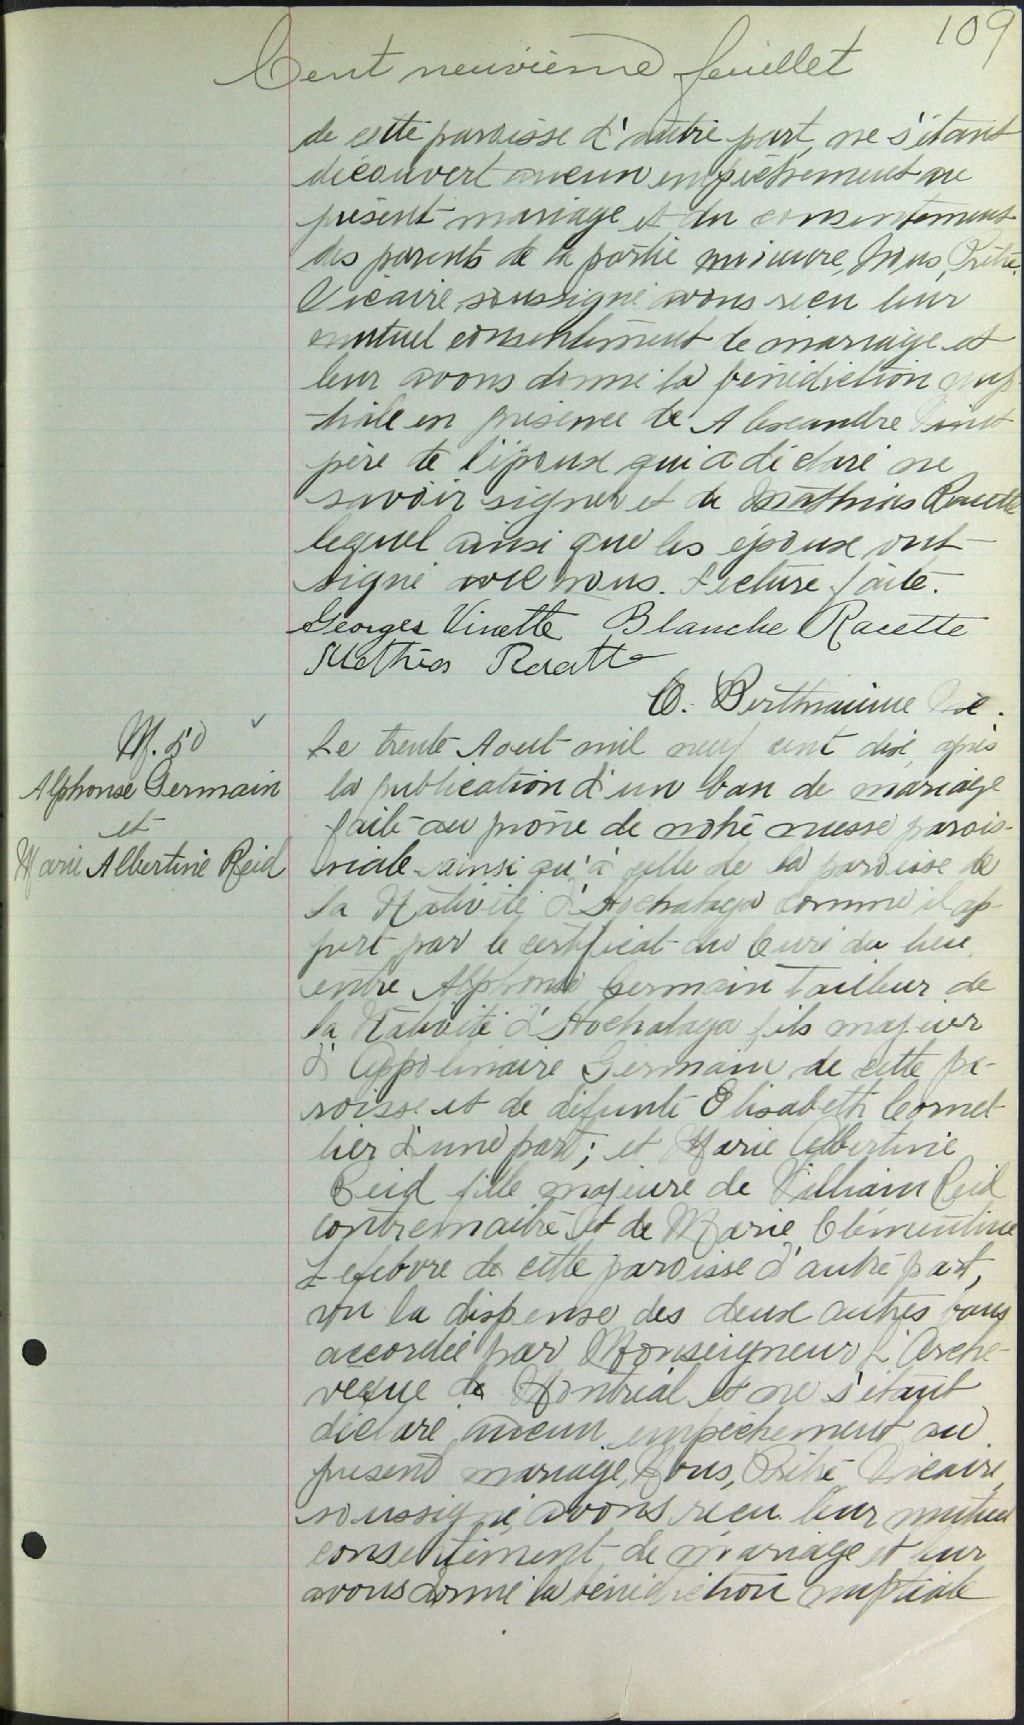 109
Cent neuvième feuillet
de cette paroisse d'autre part, ne s'étant
découvert aucun empêchement au
présent mariage et du consentement
des parents de la partie mineure, Nous, Prêtre
Vicaire, soussigné avons reçu leur
mutuel consentement de mariage et
leur avons donné la bénédiction nup
-tiale en présence de Alexandre
père de l'époux qui a déclaré ne
savoir signer et de Mathias Racette
lequel ainsi que les époux ont
signé avec nous. Lecture faite.
Georges Vinette Blanche Racette
Mathias Racette
O. Berthiaume Vic.
M. 50
Alphonse Germain
et
Marie Albertine Reid
Le trente Août mil neuf cent dix, après
la publication d'un ban de mariage
faite au prône de notre messe parois-
siale ainsi qu'à celle de la paroisse de
la Nativité d'Hochelaga comme il ap-
pert par le certificat du Curé du lieu,
entre Alphonse Germain Tailleur de
la Nativité d'Hochelaga fils majeur
d'Appolinaire Germain de cette pa-
roisse et de défunte Elisabeth Cornel
lier d'une part; et Marie Albertine
Reid fille majeure de William Reid
contremaître et de Marie Clémentine
Lefebvre de cette paroisse d'autre part,
vu la dispense des deux autres bans
accordée par Monseigneur l'Arche-
vêque de Montréal et ne s'étant
déclaré aucun empêchement au
présent mariage, Nous, Prêtre Vicaire,
soussigné, avons reçu leur mutuel
consentement de mariage et leur
avons donné la bénédiction nuptiale